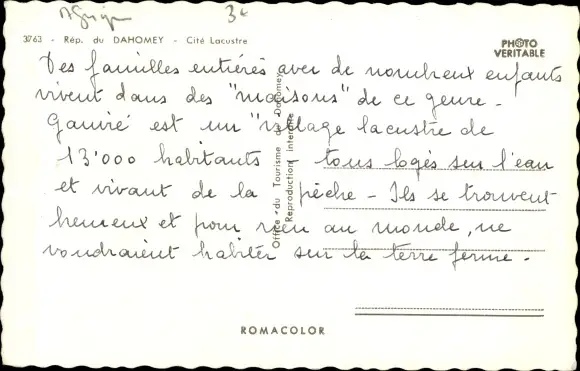 3€
3763 - Rép. du DAHOMEY - Cité Lacustre
PHOTO
VERITABLE
Des familles entières avec de nombreux enfants
vivent dans des "maisons" de ce genre -
Ganvié est un "village lacustre de
13'000 habitants - tous logés sur l'eau
et vivant de la pêche - Ils se trouvent
heureux et pour rien au monde, ne
voudraient habiter sur la terre ferme.
Office du Tourisme du Dahomey
Reproduction interdite
ROMACOLOR